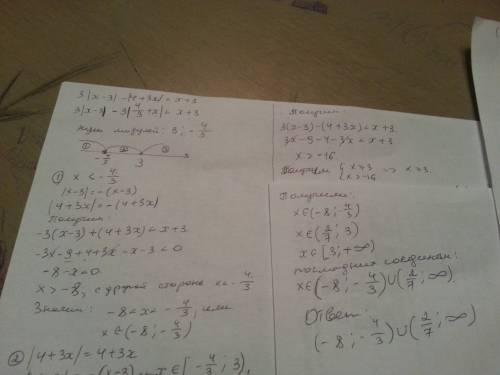 3|x-3| - |4+3x| < x+3
3|x-3| - 3|4/3+x| < x+3
модулей: 3; -4/3
① ② ③
-4/3 3
① x < -4/3
|x-3| = -(x-3)
|4+3x| = -(4+3x)
Получим:
-3(x-3)+(4+3x) < x+3
-3x-9+4+3x-x-3<0
-8-x=0
x > -8, с другой стороны x<-4/3
Значит: -8<x<-4/3, или
x∈(-8; -4/3)
② |4+3x| = 4+3x
x∈[-4/3; 3),
Получим:
3(x-3)-(4+3x) < x+3
3x-9-4-3x < x+3
x > -16
Получим { x≥3 x>-16 => x≥3
Получили:
x∈(-8; 4/3)
x∈(2/7; 3)
x∈[3; +∞)
последних соединим:
x∈(-8; -4/3)∪(2/7; ∞)
Ответ:
(-8; -4/3)∪(2/7; ∞)